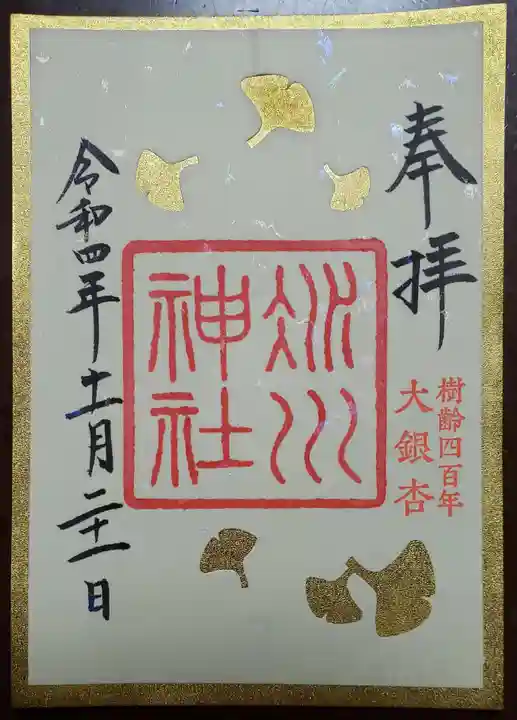 奉拝
樹齢四百年
大銀杏
氷川
神社
令和四年十一月二十一日